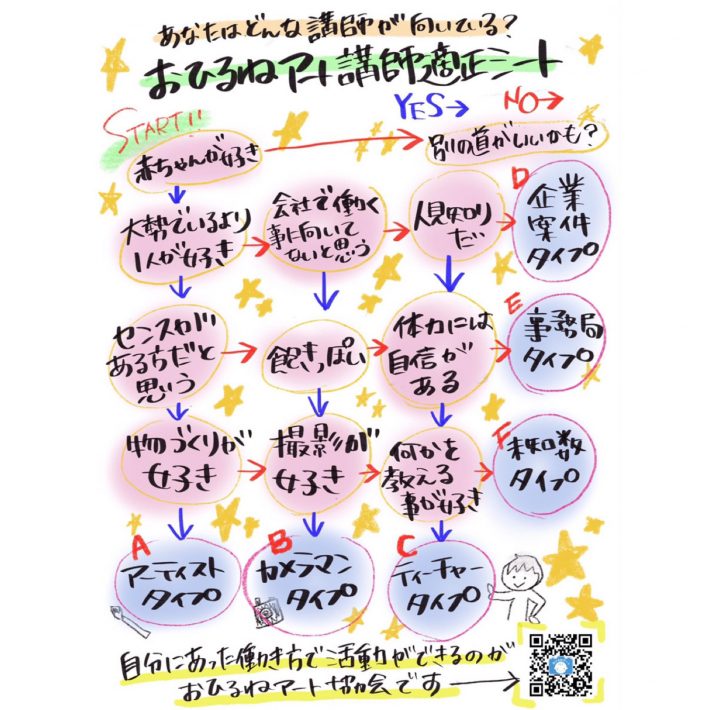 あなたはどんな講師が向いている?
おひるねアート講師適正シート
YES→ NO→
START!!
赤ちゃんが好き
別の道がいいかも?
大勢でいるより
1人が好き
会社で働く
事に向いて
ないと思う
人見知り
だ
D
企業
案件
タイプ
センスが
ある方だと
思う
飽きっぽい
体力には
自信が
ある
E
事務局
タイプ
物づくりが
好き
撮影が
好き
何かを
教える
事が好き
F
未知数
タイプ
A
アーティスト
タイプ
B
カメラマン
タイプ
C
ティーチャー
タイプ
自分にあった働き方で活動ができるのが
おひるねアート協会です→